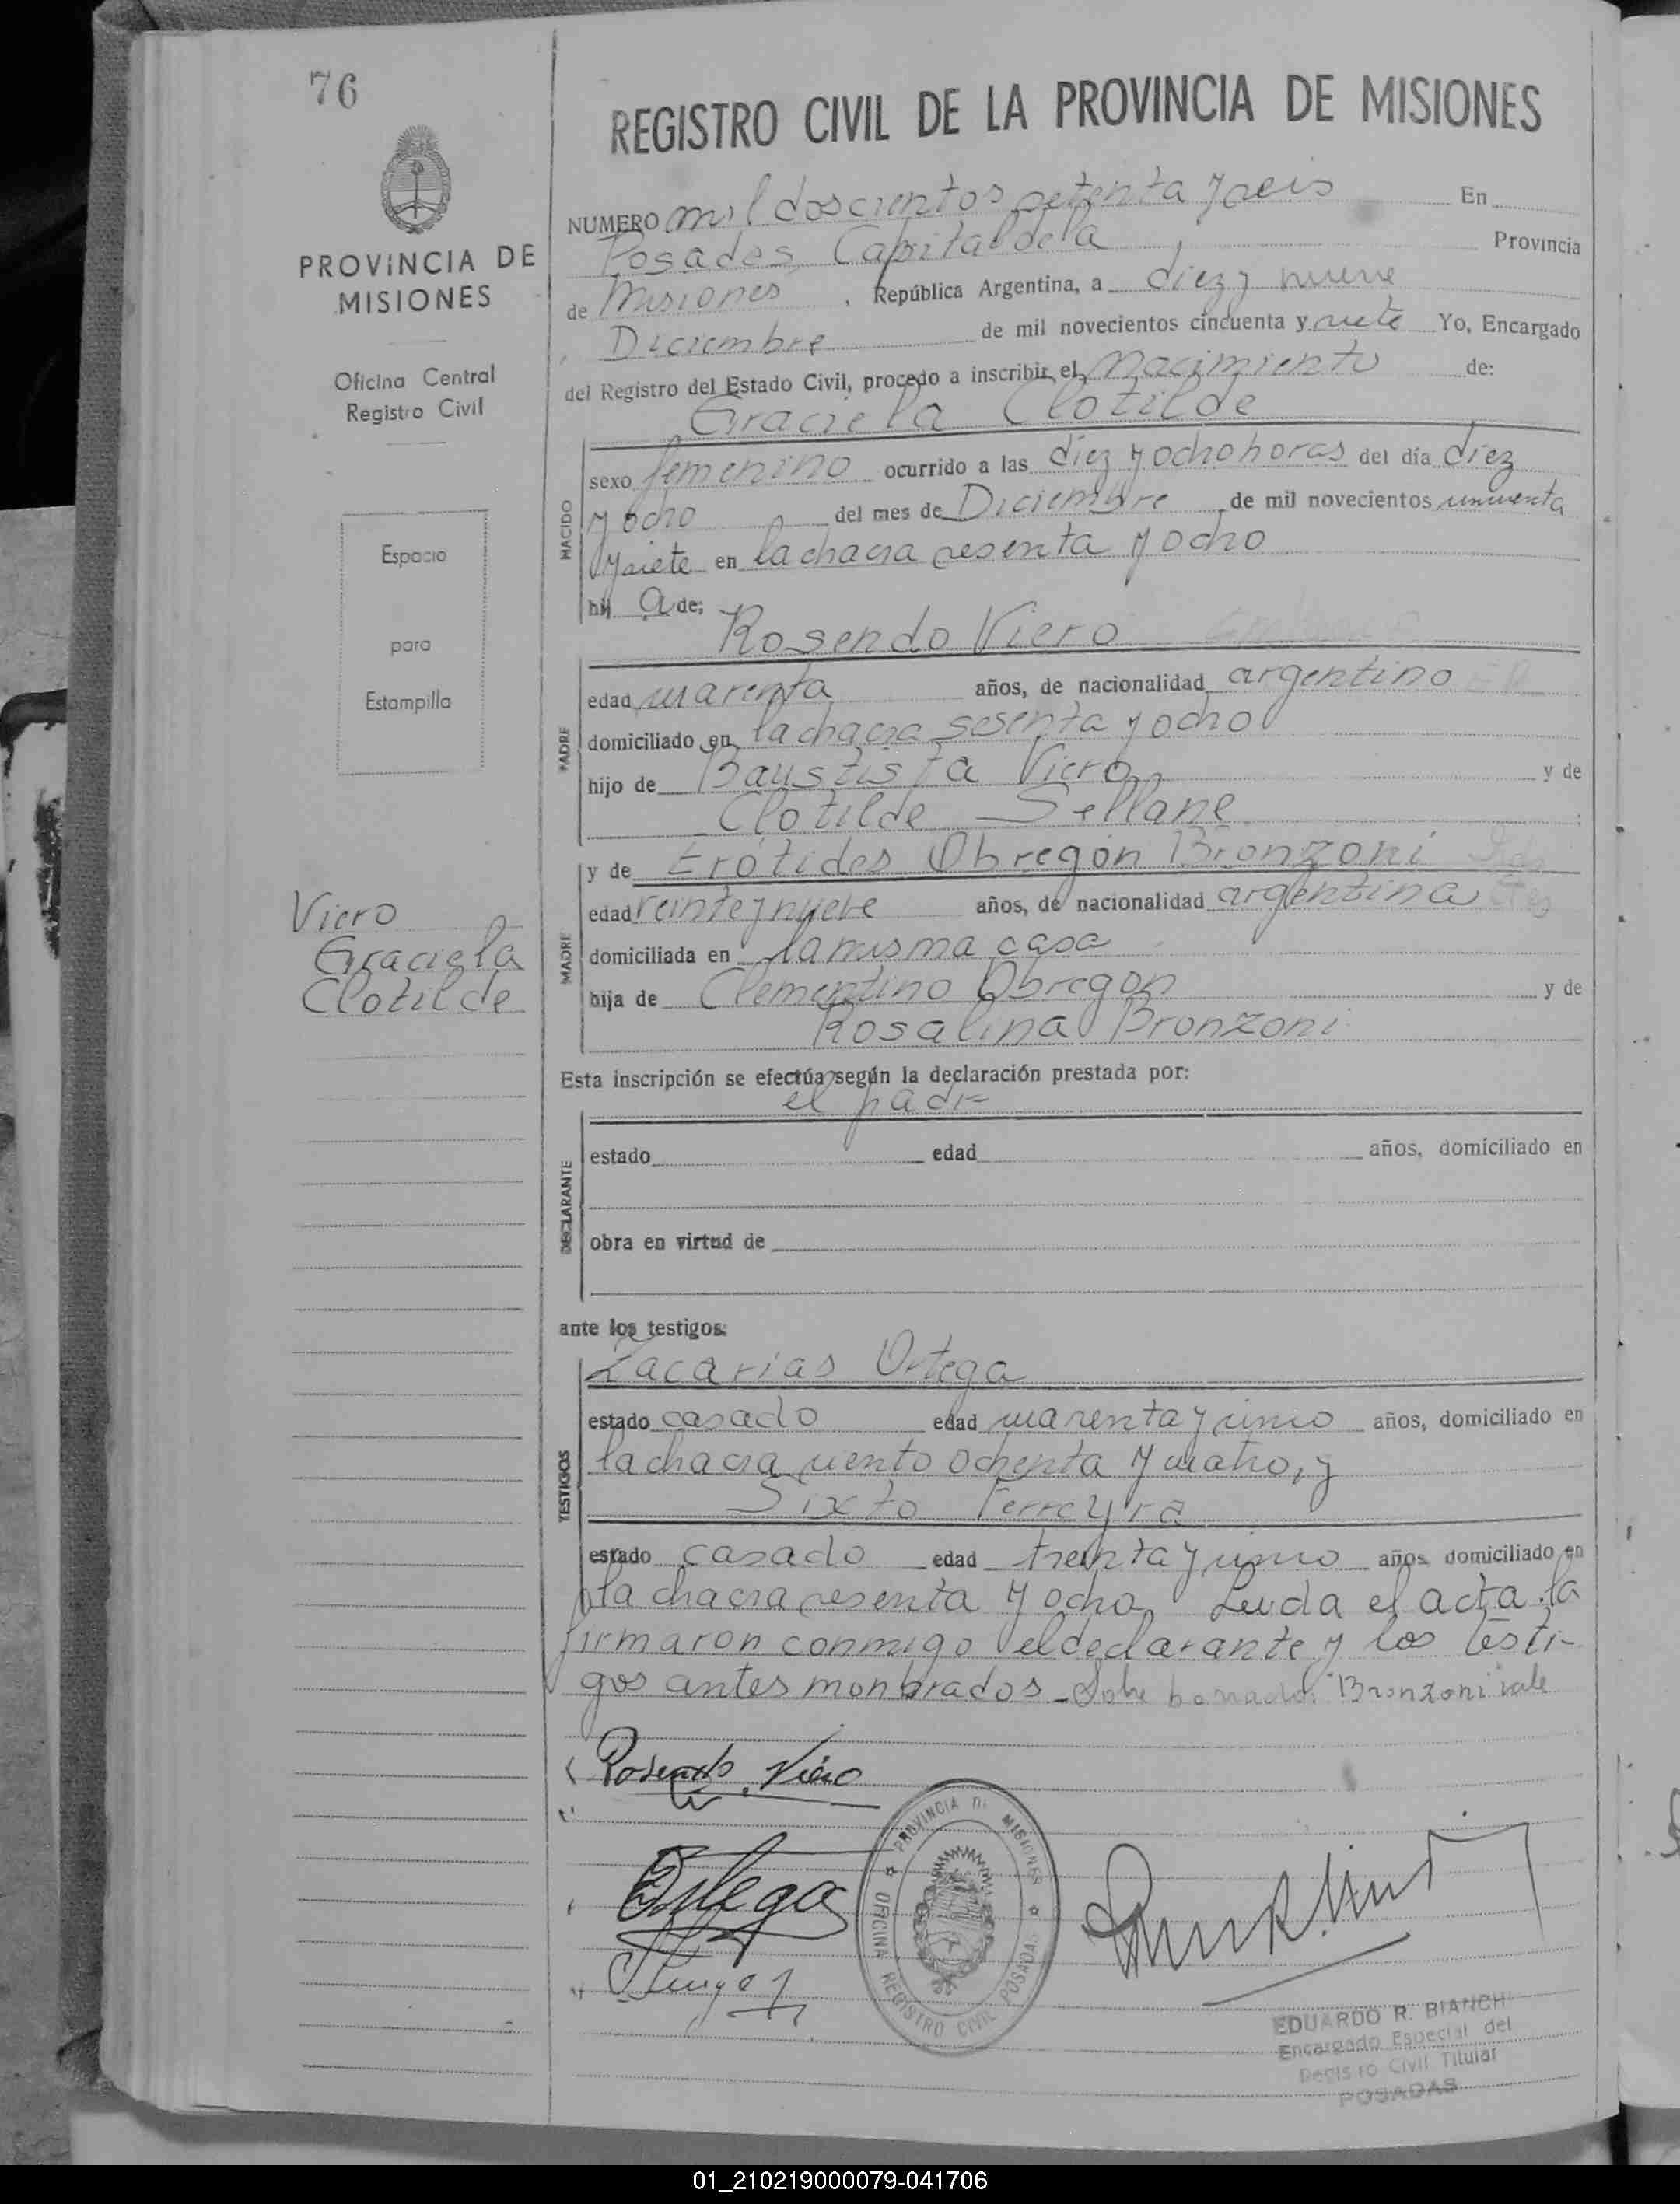 76
PROVINCIA DE
MISIONES
Oficina Central
Registro Civil
Espacio
para
Estampilla
Viero
Graciela
Clotilde
REGISTRO CIVIL DE LA PROVINCIA DE MISIONES
NUMERO mil doscientos setenta y seis En
Posadas, Capital de la Provincia
de Misiones, República Argentina, a diez y nueve
Diciembre de mil novecientos cincuenta y siete Yo, Encargado
del Registro del Estado Civil, procedo a inscribir el Nacimiento de:
Graciela Clotilde
NACIDO
sexo femenino ocurrido a las diez y ocho horas del día diez
y ocho del mes de Diciembre de mil novecientos cincuenta
y siete en la chacra sesenta y ocho
hij a de:
Rosendo Viero
PADRE
edad cuarenta años, de nacionalidad argentino
domiciliado en la chacra sesenta y ocho
hijo de Baustista Viero y de
Clotilde Sellane
y de Erótides Obregón Bronzoni
MADRE
edad veinte y nueve años, de nacionalidad argentina
domiciliada en la misma casa
hija de Clementino Obregon y de
Rosalina Bronzoni
Esta inscripción se efectúa según la declaración prestada por:
el padre
DECLARANTE
estado edad años, domiciliado en
obra en virtud de
ante los testigos:
Zacarias Ortega
TESTIGOS
estado casado edad cuarenta y cinco años, domiciliado en
la chacra ciento ochenta y cuatro, y
Sixto Ferreyra
estado casado edad treinta y cinco años domiciliado en
la chacra sesenta y ocho Leida el acta la
firmaron conmigo el declarante y los testi-
gos antes monbrados - Sobre borrado: Bronzoni vale
Rosendo Viero
Ortega
PROVINCIA DE MISIONES
OFICINA REGISTRO CIVIL POSADAS
EDUARDO R. BIANCHI
Encargado Especial del
Registro Civil Titular
POSADAS
01_210219000079-041706